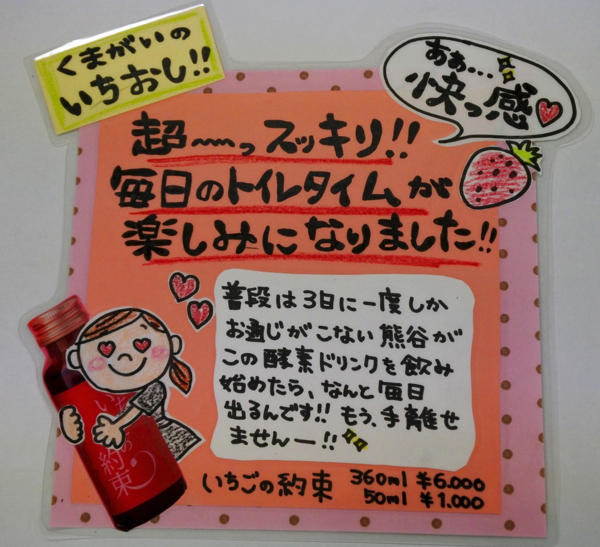 くまがいの
いちおし!!
ああ...
快っ感
超〜〜っスッキリ!!
毎日のトイレタイムが
楽しみになりました!!
普段は3日に一度しか
お通じがこない熊谷が
この酵素ドリンクを飲み
始めたら、なんと毎日
出るんです!!もう、手離せ
ませんー!!
いちごの約束 360ml ¥6.000
50ml ¥1.000
いちごの約束